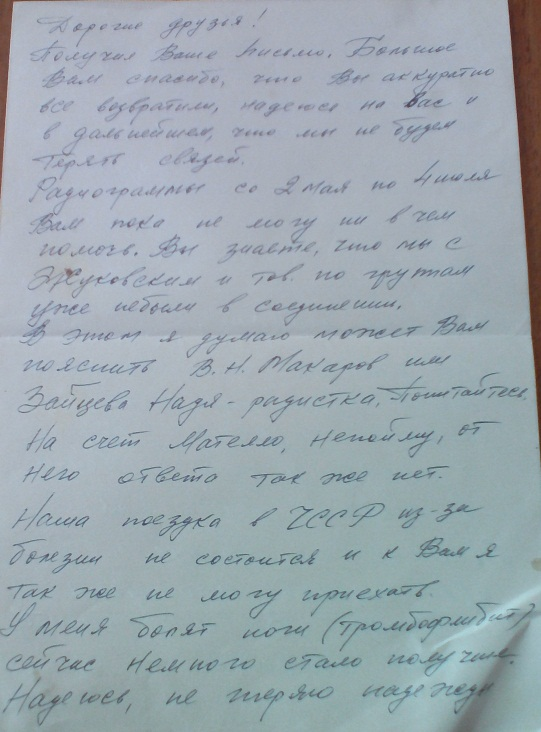 Дорогие друзья!
Получил Ваше письмо. Большое
Вам спасибо, что Вы аккуратно
все возвратили, надеюсь на Вас и
в дальнейшем, что мы не будем
терять связей.
Радиограммы со 2 мая по 4 июля
Вам пока не могу ни в чем
помочь. Вы знаете, что мы с
Жуковским и тов. по группам
уже небыли в соединении.
В этом я думаю может Вам
пояснить В.Н. Макаров или
Зайцева Надя - радистка. Попытайтесь.
На счет Мателло, непойму, от
него ответа так же нет.
Наша поездка в ЧССР из-за
болезни не состоится и к Вам я
так же не могу приехать.
У меня болят ноги (тромбофлибит)
сейчас немного стало получше.
Надеюсь, не теряю надежды